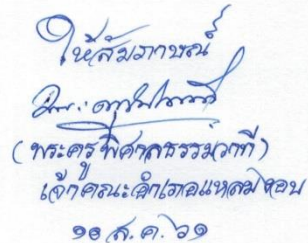 ให้สัมภาษณ์
(พระครูพิศาลธรรมวาที)
เจ้าคณะอำเภอแหลมงอบ
๑๐ ส.ค. ๖๑